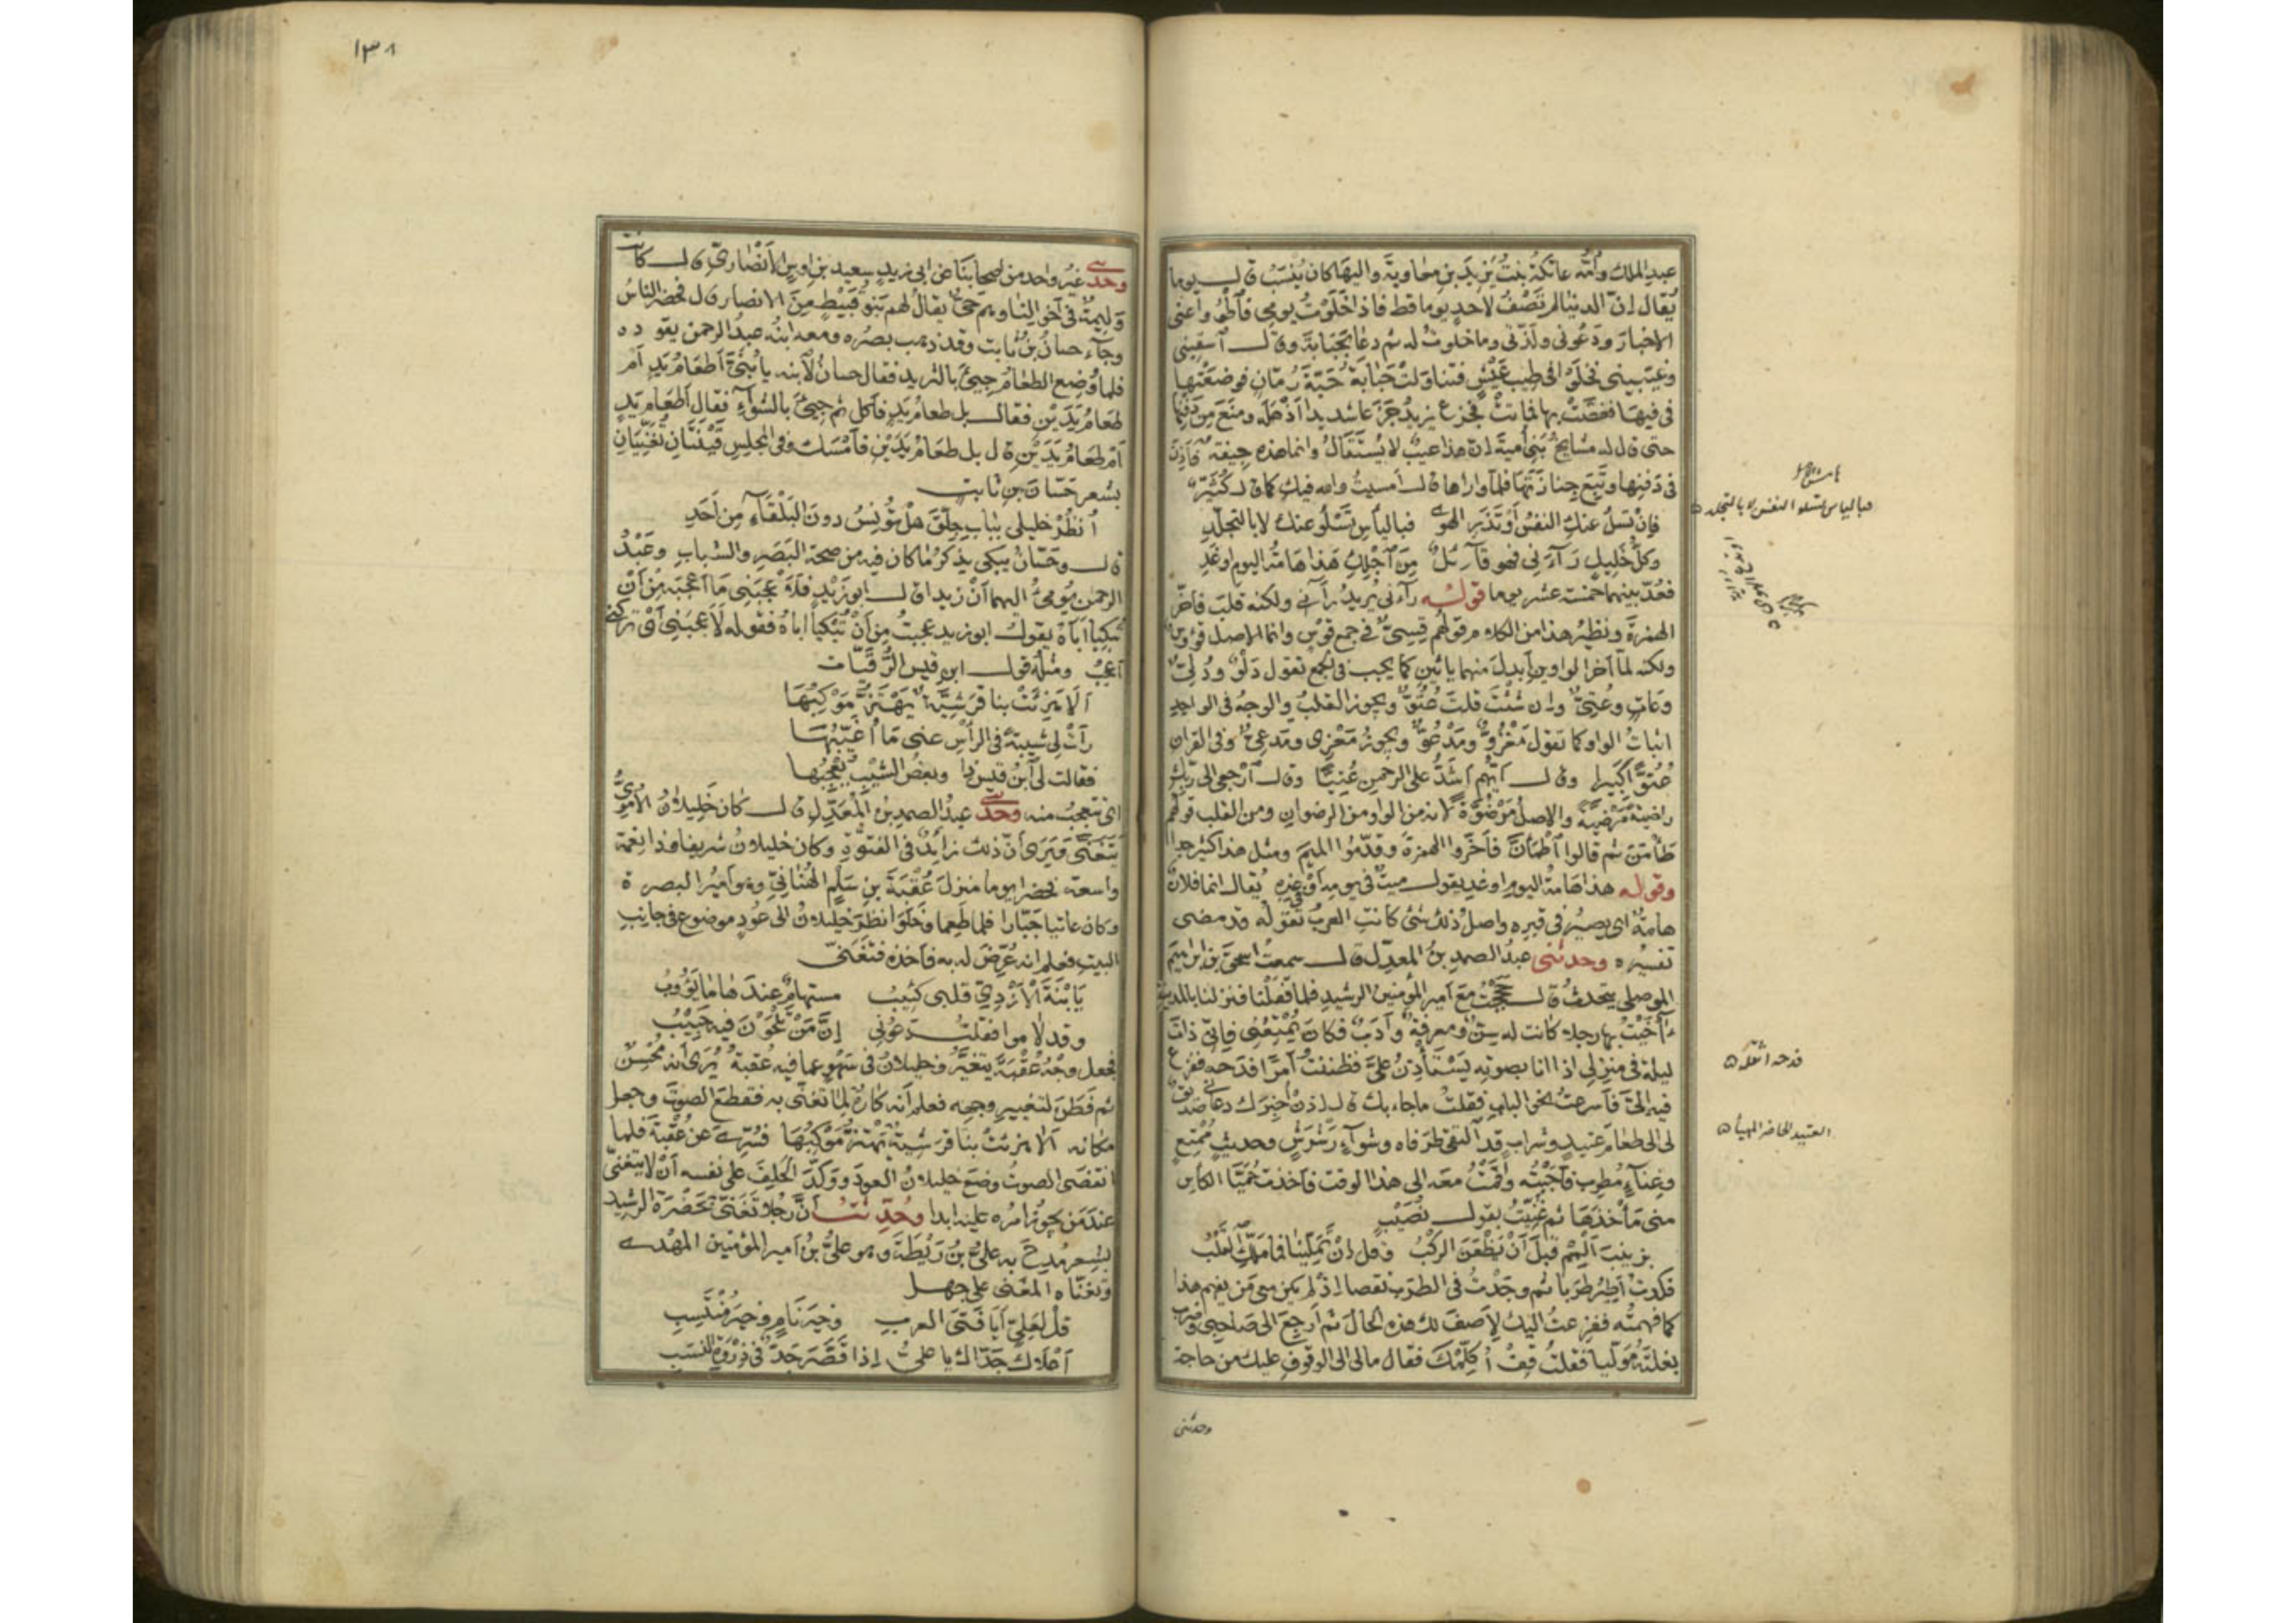 عبدِ الملك وأُمُّه عاتكةُ بنتُ يَزِيدَ بنِ معاويةَ واليها كان يُنسَبُ قال يوما
يُقال إنّ الدنيا لم تَصْفُ لاحدٍ يوما قط فاذا خَلَوْتُ يومي فاطْوُوا عني
الاخبارَ ودَعُوني ولَذَّتي وما خلوتُ له ثم دعا بحَبَابةَ وقال اسقِيني
وغَنّيني فخلَوْا في طيبِ عَيْشٍ فتناوَلَتْ حَبَابةُ حَبّةَ رُمّانٍ فوضَعَتْها
في فيها فغَصَّتْ بها فماتتْ فجزِع يزيدُ جَزَعا شديدا اذهَله ومنَع من دَفْنها
حتى قال له مشايخُ بني أميةَ إنّ هذا عيبٌ لا يُسْتَقالُ وانما هذه جِيفةٌ فأَذِنَ
في دَفنِها وتَبِعَ جِنازَتَها فلمّا واراها قال امسيتُ والله فيكِ كما قال كُثَيِّرٌ
فإنْ تَسْلُ عنكِ النفسُ أو تَذَرِ الهوى فباليأسِ تَسْلُو عنكِ لا بالتجلّدِ
وكلُّ خَليلٍ رَآءَني فهو قآئلٌ مِنَ اجْلِكِ هَذا هامةُ اليومِ أو غَدِ
فعُدَّ بينهما خمسةَ عشر يوما قوله رآءني يُريدُ رآني ولكنه قلَبَ فاخّر
الهمزةَ ونظيرُ هذا من الكلام قولهم قِسِيٌّ في جمعِ قوسٍ وانما الاصل قُؤُوسٌ
ولكنه لمّا أخّر الواوين أبدلَ منهما يائينِ كما يجب في الجمع تقول دَلْوٌ ودُلِيٌّ
وعَاتٍ وعُتِيٌّ وإن شئتَ قلتَ عُتُوٌّ ويجوز القلبُ والوجهُ في الواحدِ
اثباتُ الواو كما تقول مَغْزُوٌّ ومَدْعُوٌّ ويجوز مَغْزِيّ ومَدعيٌّ وفي القران
عُتُوًّا كبيرا وقال ايُّهم اشَدُّ على الرحمن عُتِيًّا وقال ارجعي الى ربّكِ
راضيةً مَرْضِيّةً والاصلُ مَرْضُوّةٌ لانه من الواو من الرضوان ومن القلب قولُهم
طَأْمَنَ ثم قالوا اطْمَأَنَّ فأخّروا الهمزةَ وقدّموا الميمَ ومثل هذا كثير جدا
وقوله هذا هامةُ اليومِ او غدِ يقول ميتٌ في يومِه أو في غدِه يُقال انما فلانٌ
هامةٌ اي يصيرُ في قبرِه واصلُ ذلك شئ كانت العربُ تقولُه قد مضى
تفسيره وحدثني عبدُ الصمدِ بنُ المعدّل قال سمعتُ اسحقَ بنَ ابراهيمَ
الموصلي يتحدثُ قال حَجَجْتُ مع امير المؤمنين الرشيدِ فلما قَفَلْنا فنزلنا بالمدينة
ءاخَيْتُ بها رجلا كانت له سِنٌّ ومعرِفةٌ وأدَبٌ فكان يُمْتِعُني فإنّي ذاتَ
ليلة في منزلي اذا انا بصوته يَسْتَأذِنُ علَيَّ فظننتُ أمرًا فَدَحه ففزِعَ
فيه إليَّ فأسرعتُ نحوَ البابِ فقلتُ ما جاء بك قال إذن أُخبِرَك دعاني صديقٌ
لي الى طعامٍ عَتيدٍ وشرابٍ قد التقى طرَفاه وشِوآءٍ رَشْرَشٍ وحديثٍ مُمْتِعٍ
وغِنآءٍ مُطْرِبٍ فأَجَبْتُه وأقَمْتُ معَه الى هذا الوقت فأخذتْ حُمَيَّا الكأسِ
مني مَأخَذَها ثم غُنِّيتُ بقول نُصَيْبٍ
بزينبَ ألْمِمْ قبلَ أنْ يَظْعَنَ الرّكْبُ وقل إنْ تَمَلِّينا فما مَلَّكِ القلبُ
فكدتُ أطيرُ طرَبا ثم وجَدْتُ في الطرَبِ نقصا إذْ لم يكن معي مَن يفهم هذا
كما فهمتُه ففزِعتُ اليك لأصفَ لك هذه الحالَ ثم أرجِعَ الى صاحبي وضرَب
بغلتَه مُوَلّيا فقلتُ قِفْ أُكلّمْكَ فقال ما لي الى الوقوفِ عليك من حاجة
وحدثني
فباليأس تسلو النفس لا بالتجلد
فدحه اثقله
العتيد الحاضر المهيأ
١٣٨
وحدثني غيرُ واحد من اصحابنا عن ابي زيدٍ سعيد بنِ اوسٍ الأنصاريّ قال كانت
وليمةٌ في أخوالنا وهم حيٌّ يقالُ لهم بَنو نُبَيْطٍ مِنَ الانصار قال فحضر الناسُ
وجآء حسانُ بنُ ثابت وقد ذهب بصرُه ومعه ابنُه عبدُ الرحمن يقوده
فلما وُضِع الطعامُ جِيئَ بالثريد فقال حسانُ لابنه يا بُنَيَّ أطعَامُ يَدٍ أم
طعامُ يَدَيْنِ فقال بل طعامُ يَدٍ فأكل ثم جِيئَ بالشوآءِ فقال أطعام يَدٍ
أم طعامُ يَدَيْنِ قال بل طعامُ يَدَيْنِ فأمْسَكَ وفي المجلِس قَيْنَتانِ تُغَنّيَانِ
بشعر حَسّانَ بنِ ثابت
انظُرْ خليلي بباب جِلَّقَ هل تُؤنِسُ دونَ البَلْقَآءِ مِن أحَدِ
قال وحَسّانُ يبكي يذكُرُ ما كان فيه من صحة البَصَر والشباب وعَبْدُ
الرحمن يُومِئُ اليهما أنْ زيدا قال ابو زَيْدٍ فلأَعْجَبَني ما اعْجَبَه مِنْ أنْ
تُبكِيا أباه يقول ابو زيد عجبتُ مِن أنْ تُبْكيا اباهُ فقوله لأعجَبَني أيْ تركَني
أعجَبُ ومثلُه قول ابنِ قيسِ الرُّقَيّات
ألا هَزِئَتْ بنا قُرَشِيَّةٌ يَهْتَزُّ مَوْكِبُهَا
رأتْ لي شيبةً في الرأسِ عني ما أُغَيّبُهَا
فقالت لي ابنُ قيسٍ ذا وبعضُ الشيْبِ يُعْجِبُها
اي تتعجبُ منه وحدثني عبدُ الصمدِ بنُ المُعَذَّلِ قال كان خَليلانُ الأمويُّ
يَتَغَنَّى ويَرَى أنّ ذلك زائدٌ في الفُتوّةِ وكان خليلانُ شريفا وذا نِعْمة
واسعة فحضر يوما منزلَ عُقْبَةَ بنِ سَلْمٍ الهُنَائيِّ وهو أميرُ البصرة
وكان عاتيا جَبّارا فلما طَعِما وخَلَوَا نظَر خليلانُ الى عُودٍ موضوع في جانب
البيتِ فعلم انه عُرِّضَ له به فأخذه فتغَنّى
يَا بْنَةَ الأزْديِّ قلبي كئيبُ مستهامٌ عندَها ما يَؤوبُ
وقد لاموا فقلتُ دعُوني إنَّ مَنْ تَلْحَوْنَ فيه حَبيبُ
فجعل وجهُ عُقْبةَ يتغيَّرُ وخليلانُ في سَهْوٍ عما فيه عُقبةُ يُرَى أنه مُحْسِنٌ
ثم فَطَنَ لتغييرِ وجهِه فعلم أنه كارهٌ لِما تغنّى به فقطَع الصوتَ وجعل
مكانه ألا هَزِئَتْ بنا قُرَشيةٌ يَهْتزُّ مَوْكبُها فسُرّيَ عن عُقْبةَ فلما
انقضَى الصوتُ وضَع خليلانُ العودَ ووَكَّدَ الحَلِفَ على نفسه أنْ لا يتغنّى
عندَ مَن يجوز امرُه عليه ابدا وحُدّثتُ أنّ رجُلا تَغَنّى بحَضْرةِ الرشيد
بشِعرٍ مُدِحَ به عليُّ بنُ رَيْطةَ وهو عليُّ بنُ امير المؤمنين المهْدي
وتغنّاه المغني على جهل
قل لِعَليٍّ أيا فتَى العرب وخيرَ نامٍ وخيرَ مُنْتَسِبِ
أعلاك جَدّاك يا عليُّ إذا قَصَّرَ جَدٌّ في ذِرْوةِ النسَبِ